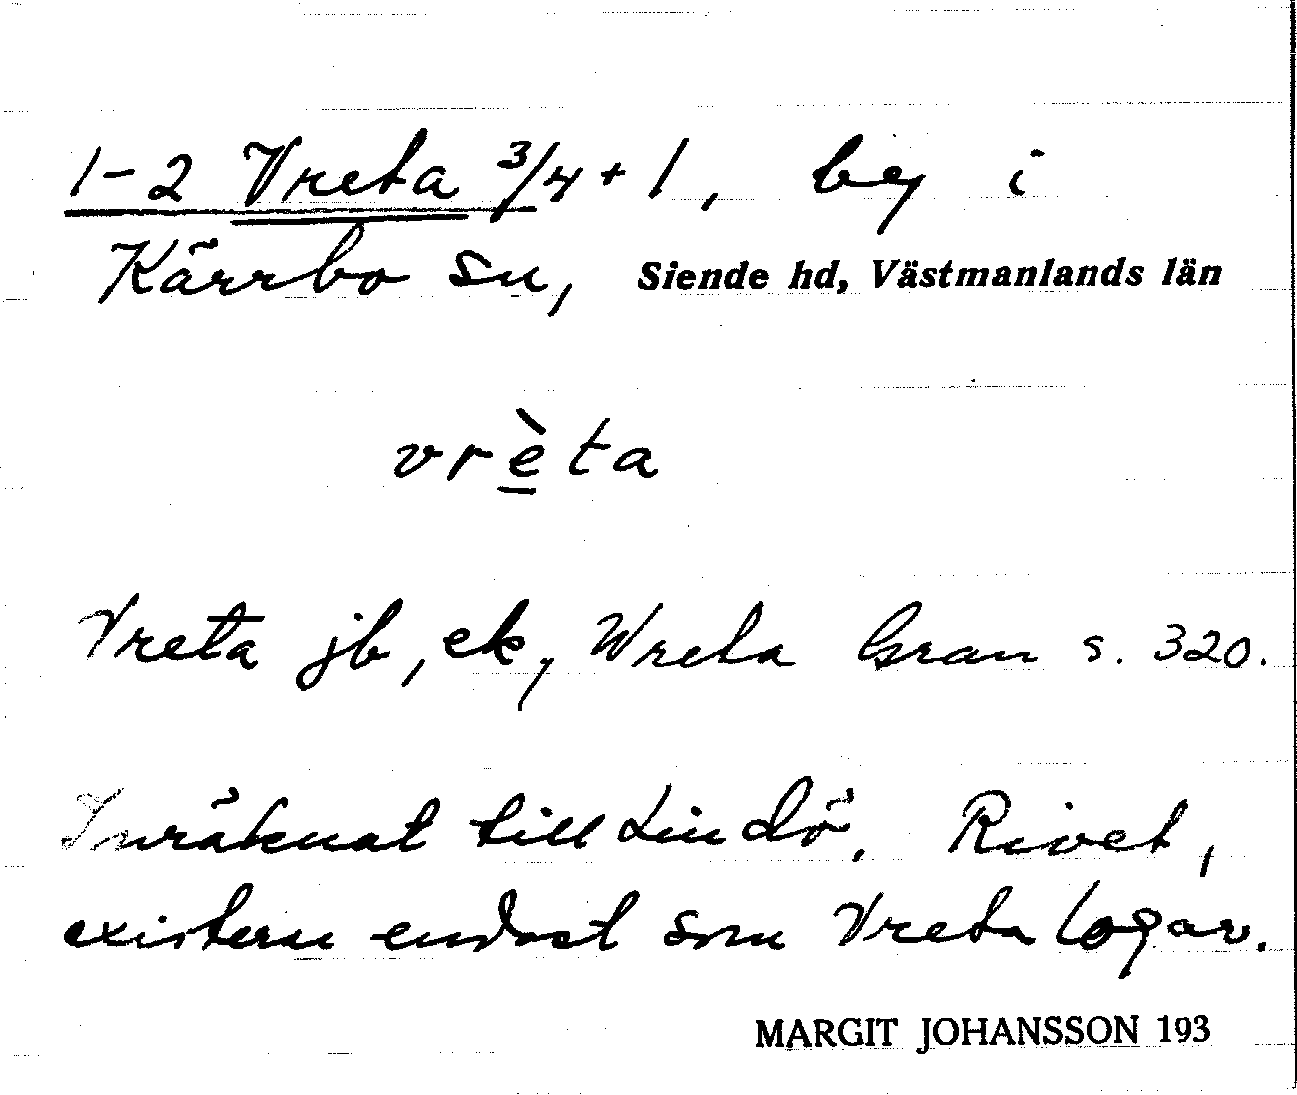 1-2 Vreta 3/4 + 1, by i
Kärrbo sn, Siende hd, Västmanlands län
vrèta
Vreta jb, ek, Wreta Gran s. 320.
Inräknat till Lindö. Rivet,
existerar endast som Vreta logar.
MARGIT JOHANSSON 193